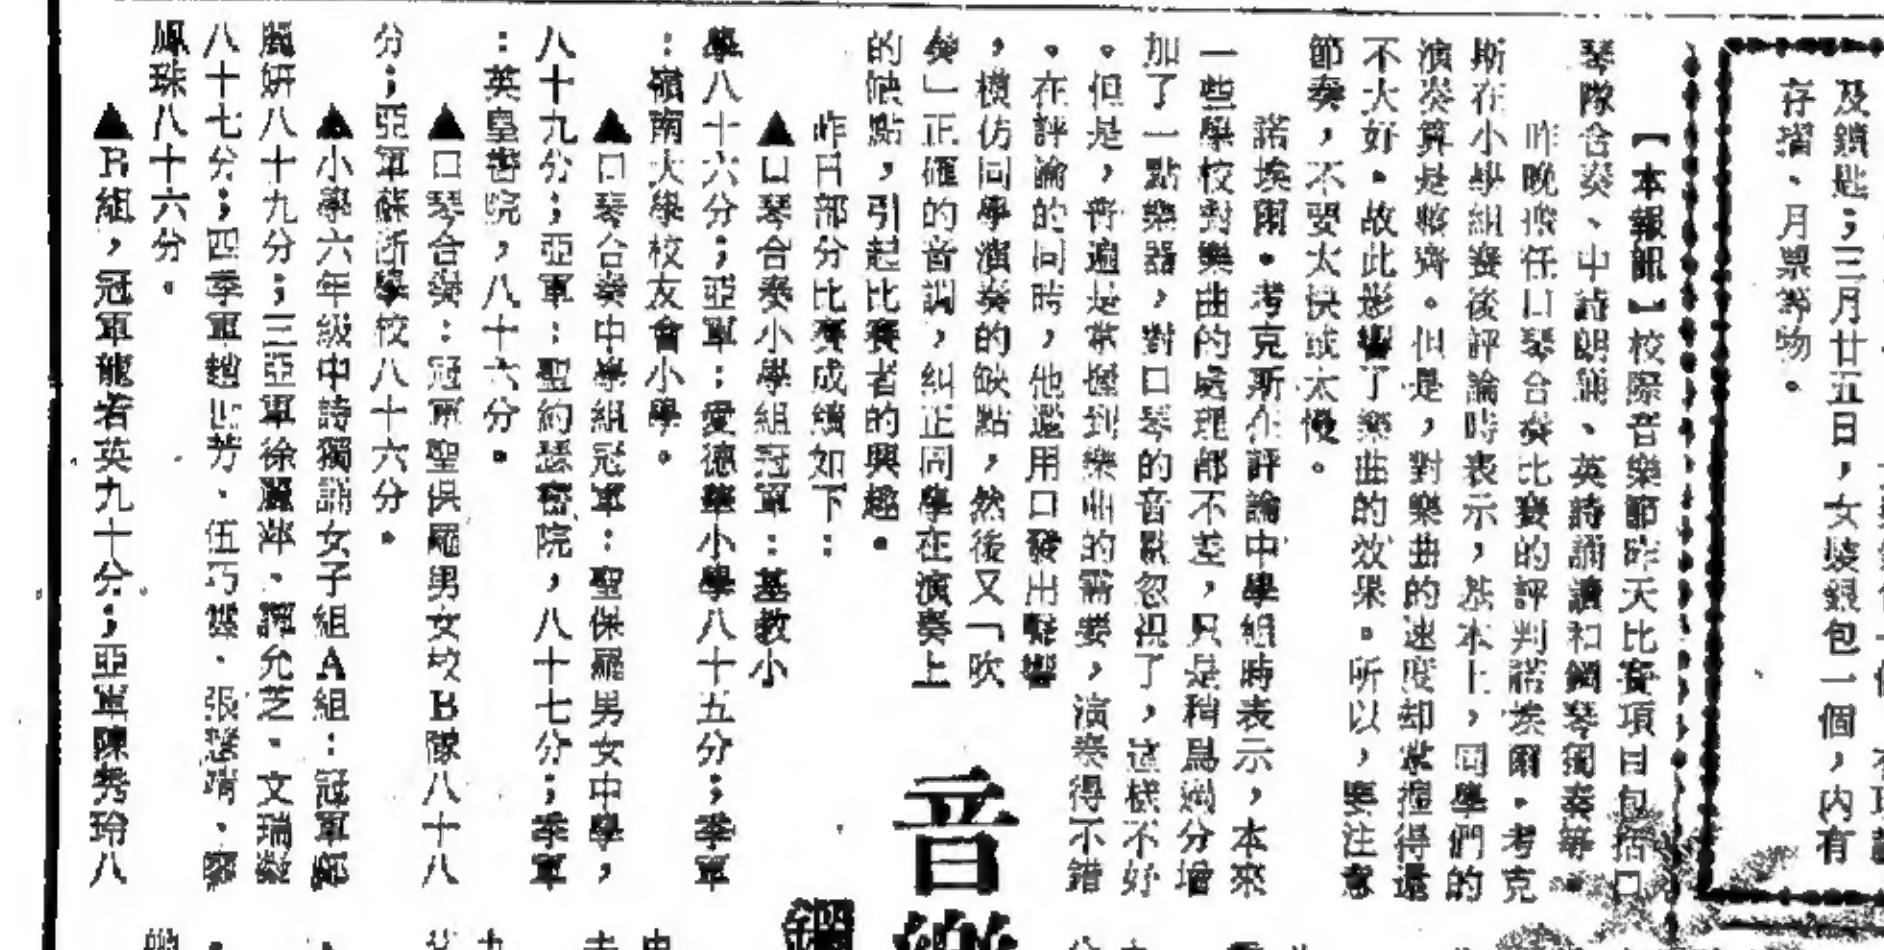 及鎖匙;三月廿五日,女裝銀包一個,內有
存摺、月票等物。
【本報訊】校際音樂節昨天比賽項目包括口
琴隊合奏、中詩朗誦、英詩誦讀和鋼琴獨奏等。
昨晚擔任口琴合奏比賽的評判諾埃爾・考克
斯在小學組賽後評論時表示,基本上,同學們的
演奏算是整齊。但是,對樂曲的速度却掌握得還
不大好。故此影響了樂曲的效果。所以,要注意
節奏,不要太快或太慢。
諾埃爾・考克斯在評論中學組時表示,本來
一些學校對樂曲的處理都不差,只是稍為過分增
加了一點樂器,對口琴的音點忽視了,這樣不好
。但是,普遍是掌握到樂曲的需要,演奏得不錯
。在評論的同時,他還用口發出聲響
,模仿同學演奏的缺點,然後又「吹
奏」正確的音調,糾正同學在演奏上
的缺點,引起比賽者的興趣。
昨日部分比賽成績如下:
▲口琴合奏小學組冠軍:基教小
學八十六分;亞軍:愛德華小學八十五分;季軍
:嶺南大學校友會小學。
▲口琴合奏中學組冠軍:聖保羅男女中學,
八十九分;亞軍:聖約瑟書院,八十七分;季軍
:英皇書院,八十六分。
▲口琴合奏:冠軍聖保羅男女校B隊八十八
分;亞軍蘇浙學校八十六分。
▲小學六年級中詩獨誦女子組A組:冠軍鄭
麗妍八十九分;三亞軍徐麗萍、譚允芝、文瑞
八十七分;四季軍趙世芳、伍巧、張慧晴、
鳳珠八十六分。
▲B組,冠軍龍若英九十分;亞軍陳秀玲八
音樂